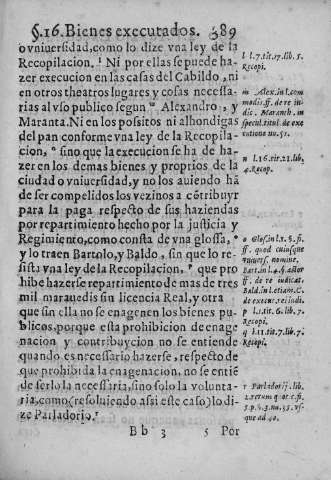 §.16. Bienes executados. 389
o vniuersidad, como lo dize vna ley de la
Recopilacion. l Ni por ellas se puede ha-
zer execucion en las casas del Cabildo, ni
en otros theatros lugares y cosas necessa-
rias al vso publico segun m Alexandro, y
Maranta. Ni en los positos ni alhondigas
del pan conforme vna ley de la Recopila-
cion, n sino que la execucion se ha de ha-
zer en los demas bienes y proprios de la
ciudad o vniuersidad, y no los auiendo hā
de ser compelidos los vezinos a cōtribuyr
para la paga respecto de sus haziendas
por repartimiento hecho por la justicia y
Regimiēto, como consta de vna glossa, o
y lo traen Bartolo, y Baldo, sin que lo re-
sista vna ley de la Recopilacion, p que pro
hibe hazerse repartimiento de mas de tres
mil marauedis sin licencia Real, y otra q
que sin ella no se enagenen los bienes pu-
blicos, porque esta prohibicion de enage
nacion y contribuycion no se entiende
quando es necessario hazerse, respecto de
que prohibida la enagenacion, no se entiē
de serlo la necessaria, sino solo la volunta-
ria, como (resoluiendo assi este caso) lo di-
ze Parladorio. r
B b 3 5 Por
l l.7.tit.17.lib.5.
Recopi.
m Alex. in l. com
modis. ff. de re in
dis. Maranth. in
specul. titul. de exe
cutione nu. 51.
n l.16.tit.21.lib.
4. Recop.
o Glos. in l.1.§. si.
ff. quod cuiusque
Bart. in l.4.§. actor
ff. de re iudicat.
Bald. in l. etiam. C.
de execut. rei iudi.
p l.1.tit.6.lib.7.
Recopi.
q l.11.tit.7.lib.7.
Recopi.
r Parladorij. lib.
2. rerum quot c. fi.
5. p. §. 3. nu. 35. vs-
que ad 40.